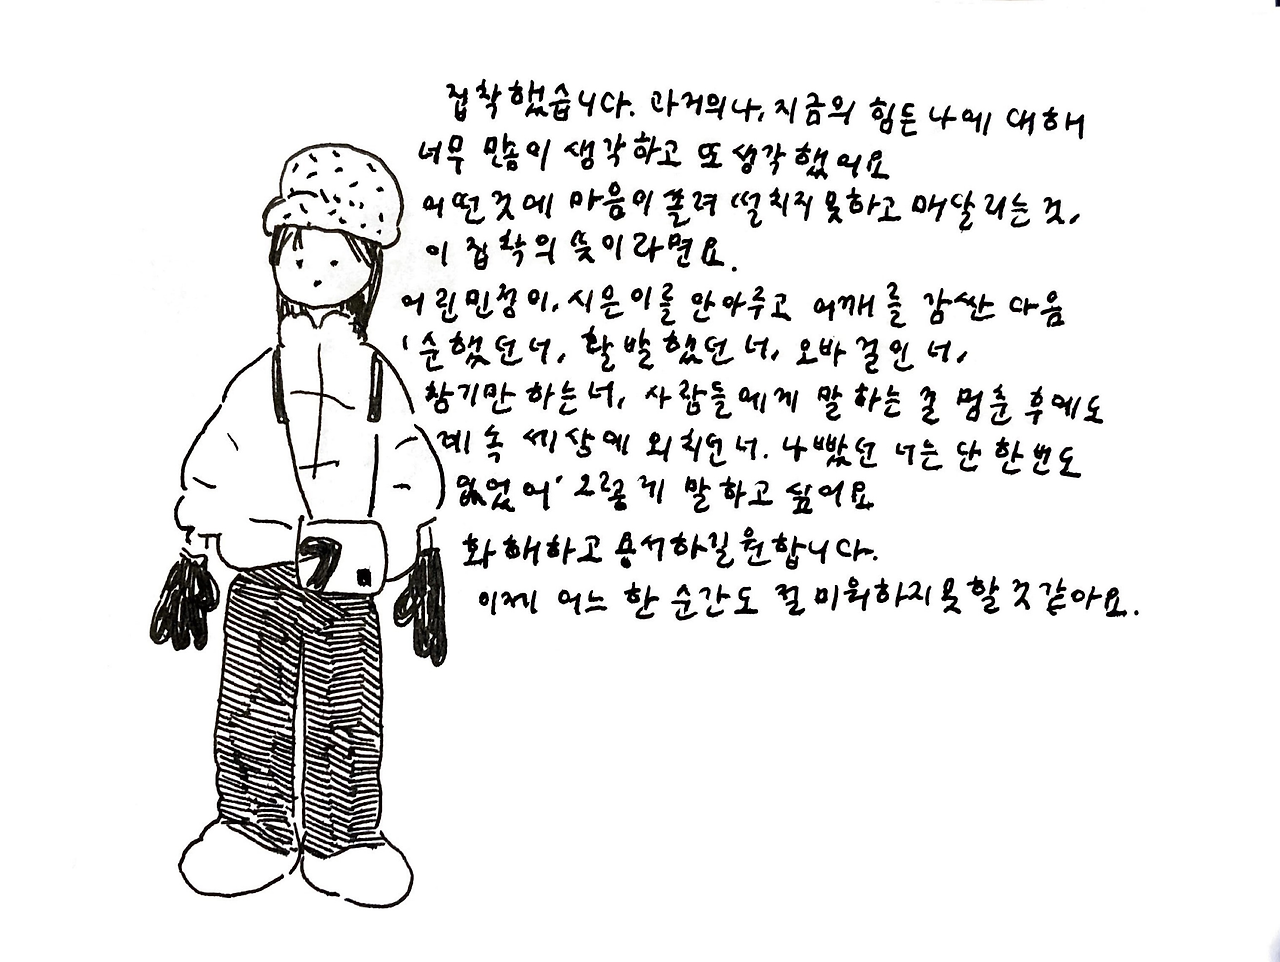 집착했습니다. 과거의 나, 지금의 힘든 나에 대해
너무 많이 생각하고 또 생각했어요
어떤 것에 마음이 쏠려 떨치지 못하고 매달리는 것,
이 집착의 뜻이라면요.
어린 민정이, 시은이를 안아주고 어깨를 감싼 다음
'순했던 너, 활발했던 너, 오바 걸인 너,
참기만 하는 너, 사람들에게 말 하는 걸 멈춘 후에도
계속 세상에 외치던 너. 나빴던 너는 단 한 번도
없었어' 그렇게 말하고 싶어요
화해하고 용서하길 원합니다.
이제 어느 한 순간도 절 미워하지 못할 것 같아요.